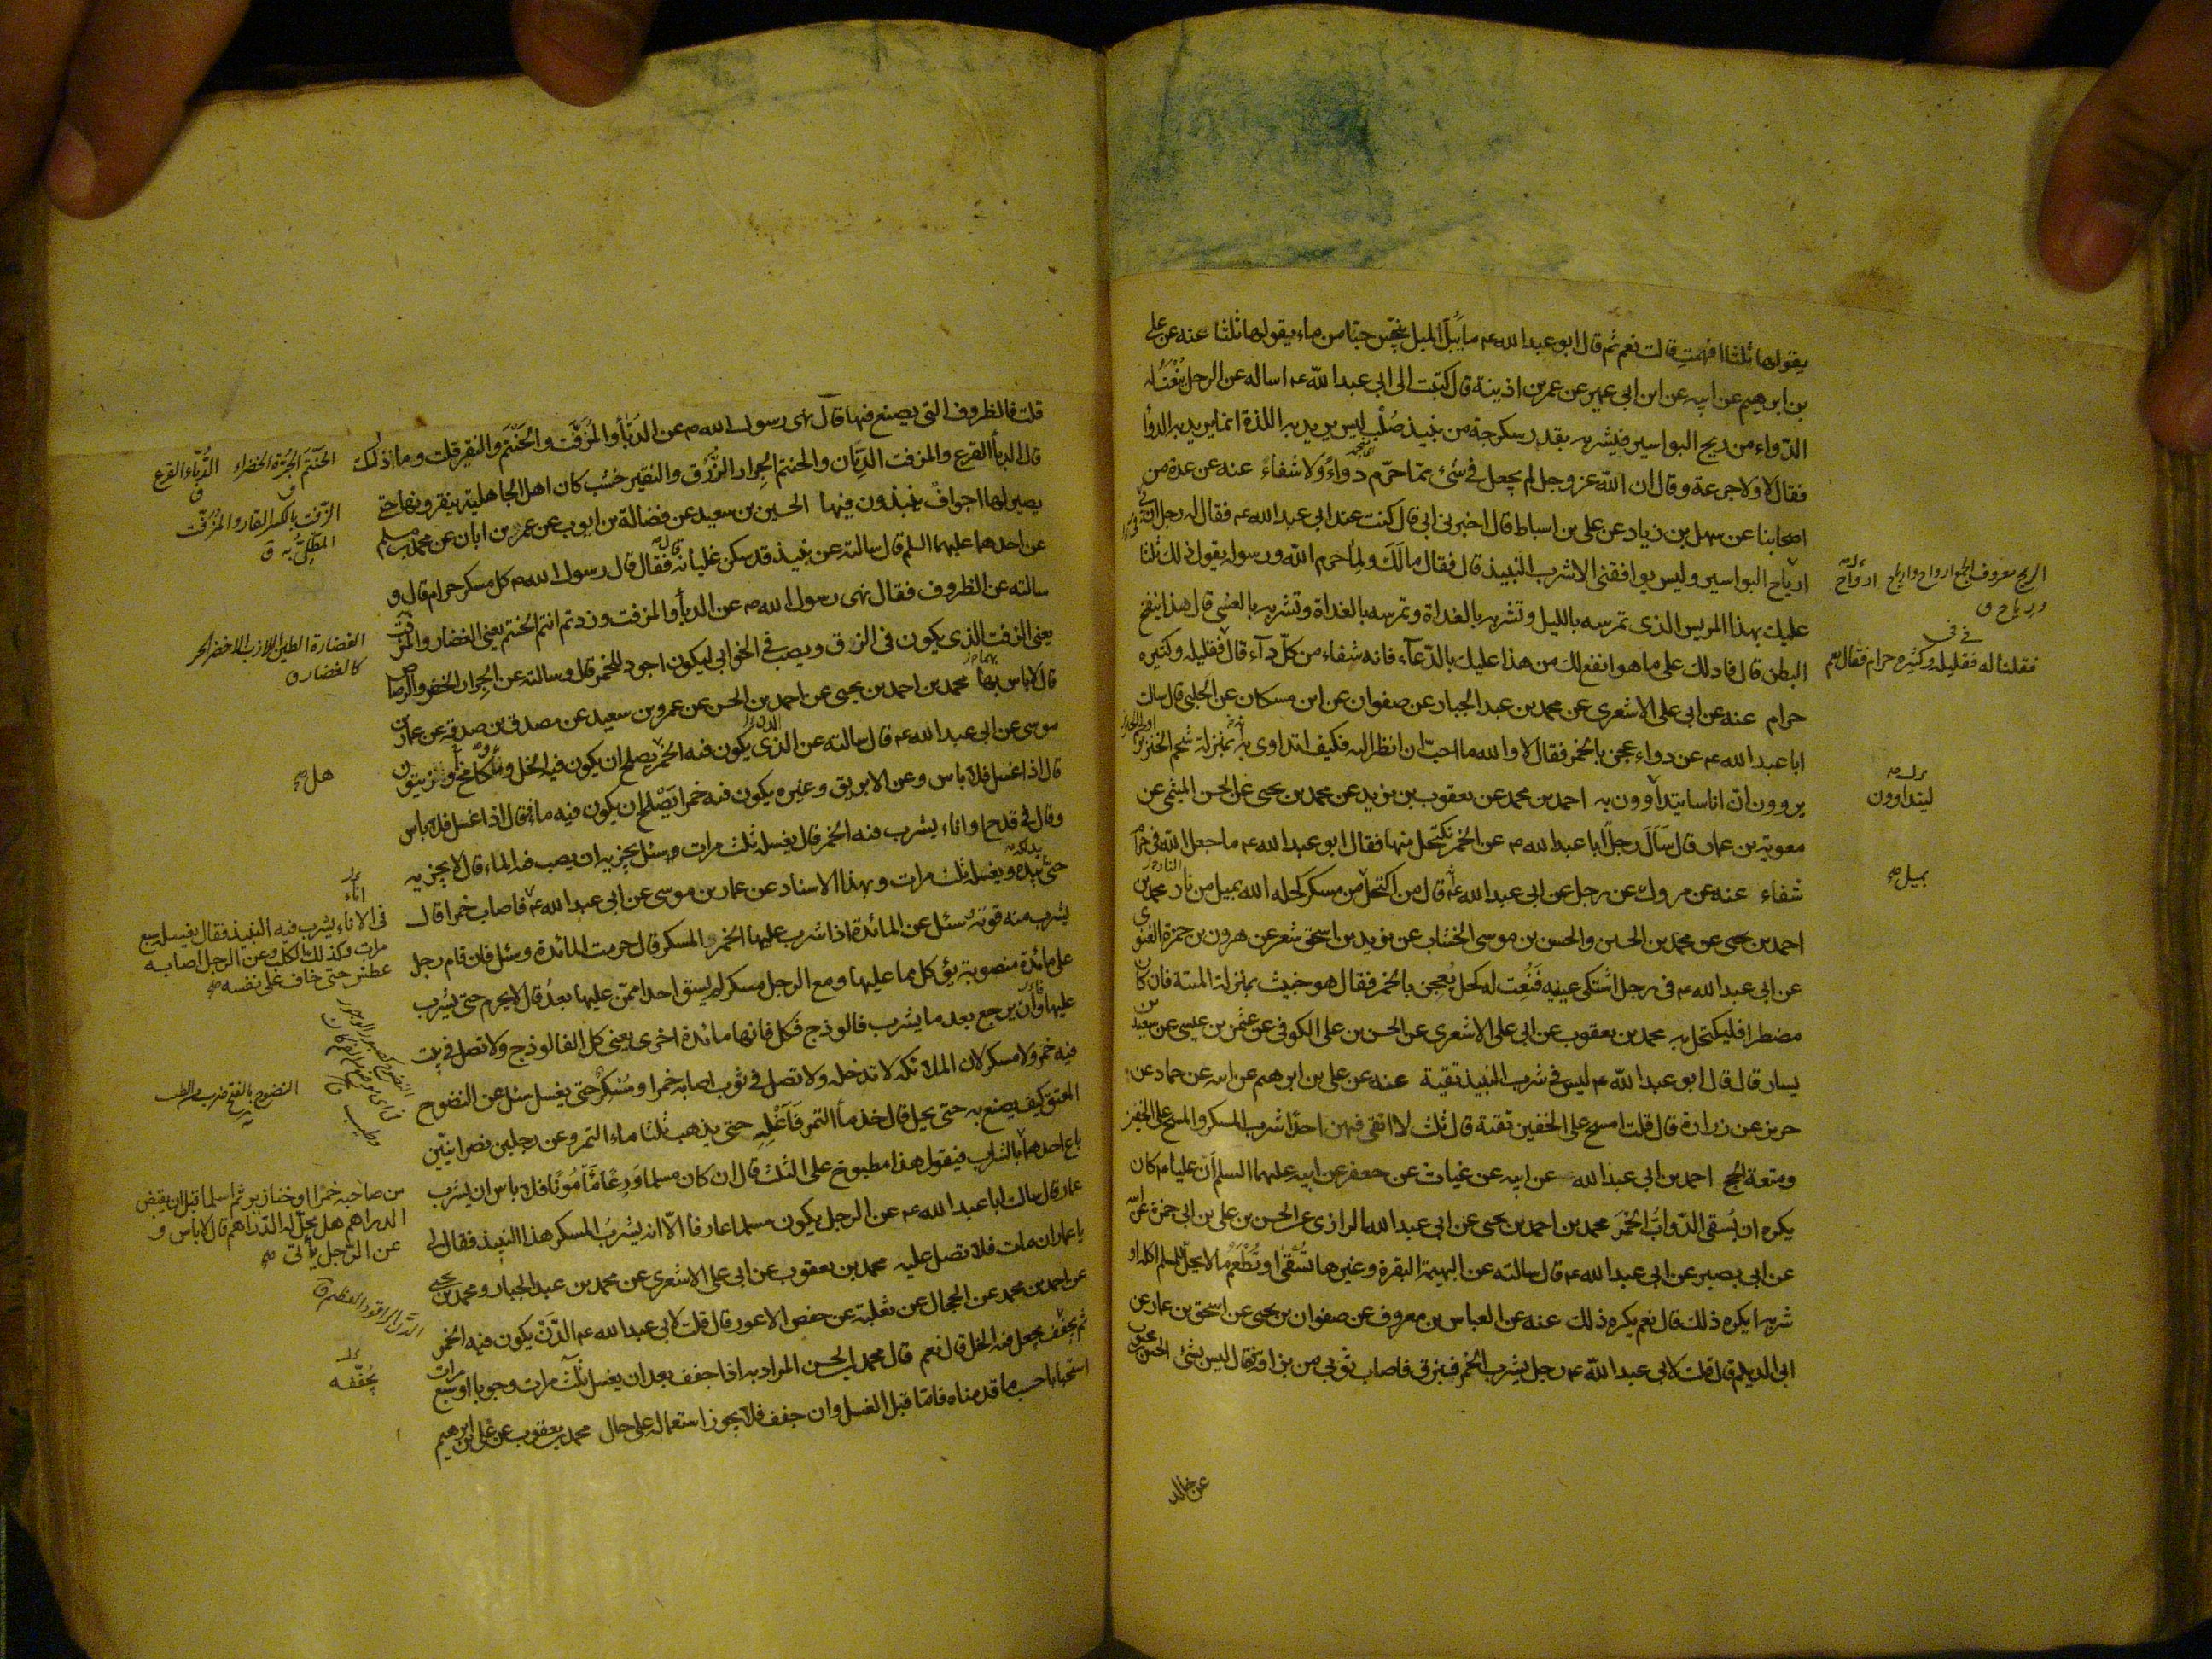 يقولها ثلثا افهمت قالت نعم ثم قال ابو عبد الله ع ما يبل الميل ينجس حبا من ماء يقولها ثلثا عنه عن علي
بن ابرهيم عن ابيه عن ابن ابي عمير عن عمر بن اذينة قال كتبت الى ابي عبد الله ع اساله عن الرجل ينعت له
الدواء من ريح البواسير فيشربه بقدر سكرجة من نبيذ صلب ليس يريد به اللذة انما يريد به الدوأ
فقال لا ولا جرعة وقال ان الله عز وجل لم يجعل في شئ مما حرم دواء ولا شفاء عنه عن عدة من
اصحابنا عن سهل بن زياد عن علي بن اسباط قال اخبرني ابي قال كنت عند ابي عبد الله ع فقال له رجل ان بي
ارياح البواسير وليس يوافقني الا شرب النبيذ قال فقال مالك ولما حرم الله ورسوله يقول ذلك ثلثا
عليك بهذا المريس الذى تمرسه بالليل وتشربه بالغداة وتمرسه بالغداة وتشربه بالعشي قال هذا ينفخ
البطن قال فادلك على ما هو انفع لك من هذا عليك بالدعاء فانه شفاء من كل دآء قال فقليله وكثيره
حرام عنه عن ابي علي الاشعرى عن محمد بن عبد الجبار عن صفوان عن ابن مسكان عن الحلبي قال سالت
ابا عبد الله ع عن دواء عجن بالخمر فقال لا والله ما احب ان انظر اليه فكيف اتداوى به بمنزلة شحم الخنزير
يروون ان اناسا يتداوون به احمد بن محمد عن يعقوب بن يزيد عن محمد بن يحيى عن الحسن الميثمي عن
معوية بن عمار قال سال رجل ابا عبد الله ع عن الخمر نكتحل منها فقال ابو عبد الله ع ما جعل الله في حرام
شفاء عنه عن مروك عن رجل عن ابي عبد الله ع قال من اكتحل من مسكر كحله الله بميل من نار محمد بن
احمد بن يحيى عن محمد بن الحسين والحسن بن موسى الخشاب عن يزيد بن اسحق شعر عن هرون بن حمزة الغنوى
عن ابي عبد الله ع في رجل اشتكى عينيه فنعت له كحل يعجن بالخمر فقال هو خبيث بمنزلة الميتة فان كان
مضطرا فليكتحل به محمد بن يعقوب عن ابي علي الاشعرى عن الحسن بن علي الكوفي عن عثمن بن عيسى عن سعيد بن
يسار قال قال ابو عبد الله ع ليس في شرب النبيذ تقية عنه عن علي بن ابرهيم عن ابيه عن حماد عن
حريز عن زرارة قال قلت امسح على الخفين تقية قال ثلث لا اتقى فيهن احدا شرب المسكر والمسح على الخفين
ومتعة الحج احمد بن ابي عبد الله عن ابيه عن غياث عن جعفر عن ابيه عليهما السلم ان عليا ع كان
يكره ان يسقى الدواب الخمر محمد بن احمد بن يحيى عن ابي عبد الله الرازى عن الحسن بن علي بن ابي حمزة عن ابيه
عن ابي بصير عن ابي عبد الله ع قال سالته عن البهيمة البقرة وغيرها تسقى او تطعم ما لا يحل للمسلم اكله او
شربه ايكره ذلك قال نعم يكره ذلك عنه عن العباس بن معروف عن صفوان بن يحيى عن اسحق بن عمار عن
ابي الديلم قال قلت لابي عبد الله ع رجل يشرب الخمر فيبزق فاصاب ثوبي من بزاقه قال ليس بشئ الحسن بن محبوب
عن خالد
الريح معروف الجمع ارواح وارياح
ورياح ق
فقلنا له فقليله وكثيره حرام فقال نعم
ليتداوون
بميل صح
قلت فالظروف التى يصنع فيها قال نهى رسول الله ص عن الدبأ والمزفت والحنتم والنقير قلت وما ذلك
قال الدبأ القرع والمزفت الدنان والحنتم الجرار الزرق والنقير خشب كان اهل الجاهلية ينقرونها حتى
يصير لها اجواف ينبذون فيها الحسين بن سعيد عن فضالة بن ايوب عن عمر بن ابان عن محمد بن مسلم
عن احدهما عليهما السلم قال سالته عن نبيذ قد سكن غليانه فقال قال رسول الله ص كل مسكر حرام قال و
سالته عن الظروف فقال نهى رسول الله ص عن الدبأ والمزفت وزدتم انتم الحنتم يعني الغضار والمزفت
يعنى الزفت الذي يكون في الزق ويصب في الخوابى ليكون اجود للخمر قال وسالته عن الجرار الخضر والرصاص
قال لا باس بها محمد بن احمد بن يحيى عن احمد بن الحسن عن عمرو بن سعيد عن مصدق بن صدقة عن عمار بن
موسى عن ابي عبد الله ع قال سالته عن الذي يكون فيه الخمر يصلح ان يكون فيه الخل وماء كامخ او زيتون
قال اذا غسل فلا باس وعن الابريق وغيره يكون فيه خمر ايصلح ان يكون فيه ماء قال اذا غسل فلا باس
وقال في قدح او اناء يشرب فيه الخمر قال يغسله ثلث مرات وسئل يجزيه ان يصب فيه الماء قال لا يجزيه
حتى يدلكه بيده ويغسله ثلث مرات وبهذا الاسناد عن عمار بن موسى عن ابي عبد الله ع فاصاب خمرا قال
يشرب منه قوته سئل عن المائدة اذا شرب عليها الخمر والمسكر قال حرمت المائدة وسئل فان قام رجل
على مائدة منصوبة يؤكل مما عليها ومع الرجل مسكر لم يسق احدا ممن عليها بعد قال لا يحرم حتى يشرب
عليها وان يرجع بعد ما يشرب فالوذج فكل فانها مائدة اخرى يعني كل الفالوذج ولا تصل في بيت
فيه خمر ولا مسكر لان الملائكة لا تدخله ولا تصل في ثوب اصابه خمر او مسكر حتى يغسل سئل عن النضوح
المعتق كيف يصنع به حتى يحل قال خذ مأ التمر فاغله حتى يذهب ثلثا ماء التمر وعن رجلين نصرانيين
باع احدهما بالشراب فيقول هذا مطبوخ على الثلث قال ان كان مسلما ورعا مامونا فلا باس ان يشرب
عمار قال سالت ابا عبد الله ع عن الرجل يكون مسلما عارفا الا انه يشرب المسكر هذا النبيذ فقال لي
يا عمار ان مات فلا تصل عليه محمد بن يعقوب عن ابي علي الاشعرى عن محمد بن عبد الجبار ومحمد بن يحيى
عن احمد بن محمد عن الحجال عن ثعلبة عن حفص الاعور قال قلت لابي عبد الله ع الدن يكون فيه الخمر
ثم يجفف يجعل فيه الخل قال نعم قال محمد بن الحسن المراد به اذا جفف بعد ان يغسل ثلث مرات وجوبا او سبع مرات
استحبابا حسب ما قدمناه فاما قبل الغسل وان جفف فلا يجوز استعماله على حال محمد بن يعقوب عن علي بن ابرهيم
الحنتم الجرة الخضراء الدباء القرع
الزفت بالكسر القار والمزفت
المطلى به ق
الغضارة الطين اللازب الاخضر الحر
كالغضار ق
هل صح
اناء
في الاناء يشرب فيه النبيذ فقال يغسله سبع
مرات وكذلك الكلب وعن الرجل اصابه
عطش حتى خاف على نفسه صح
من صاحبه خمرا او خنازير ثم اسلما قبل ان يقبض
الدراهم هل يحل له الدراهم قال لا باس و
عن الرجل يأتي صح
الدن الراقود العظيم ق
يجففه